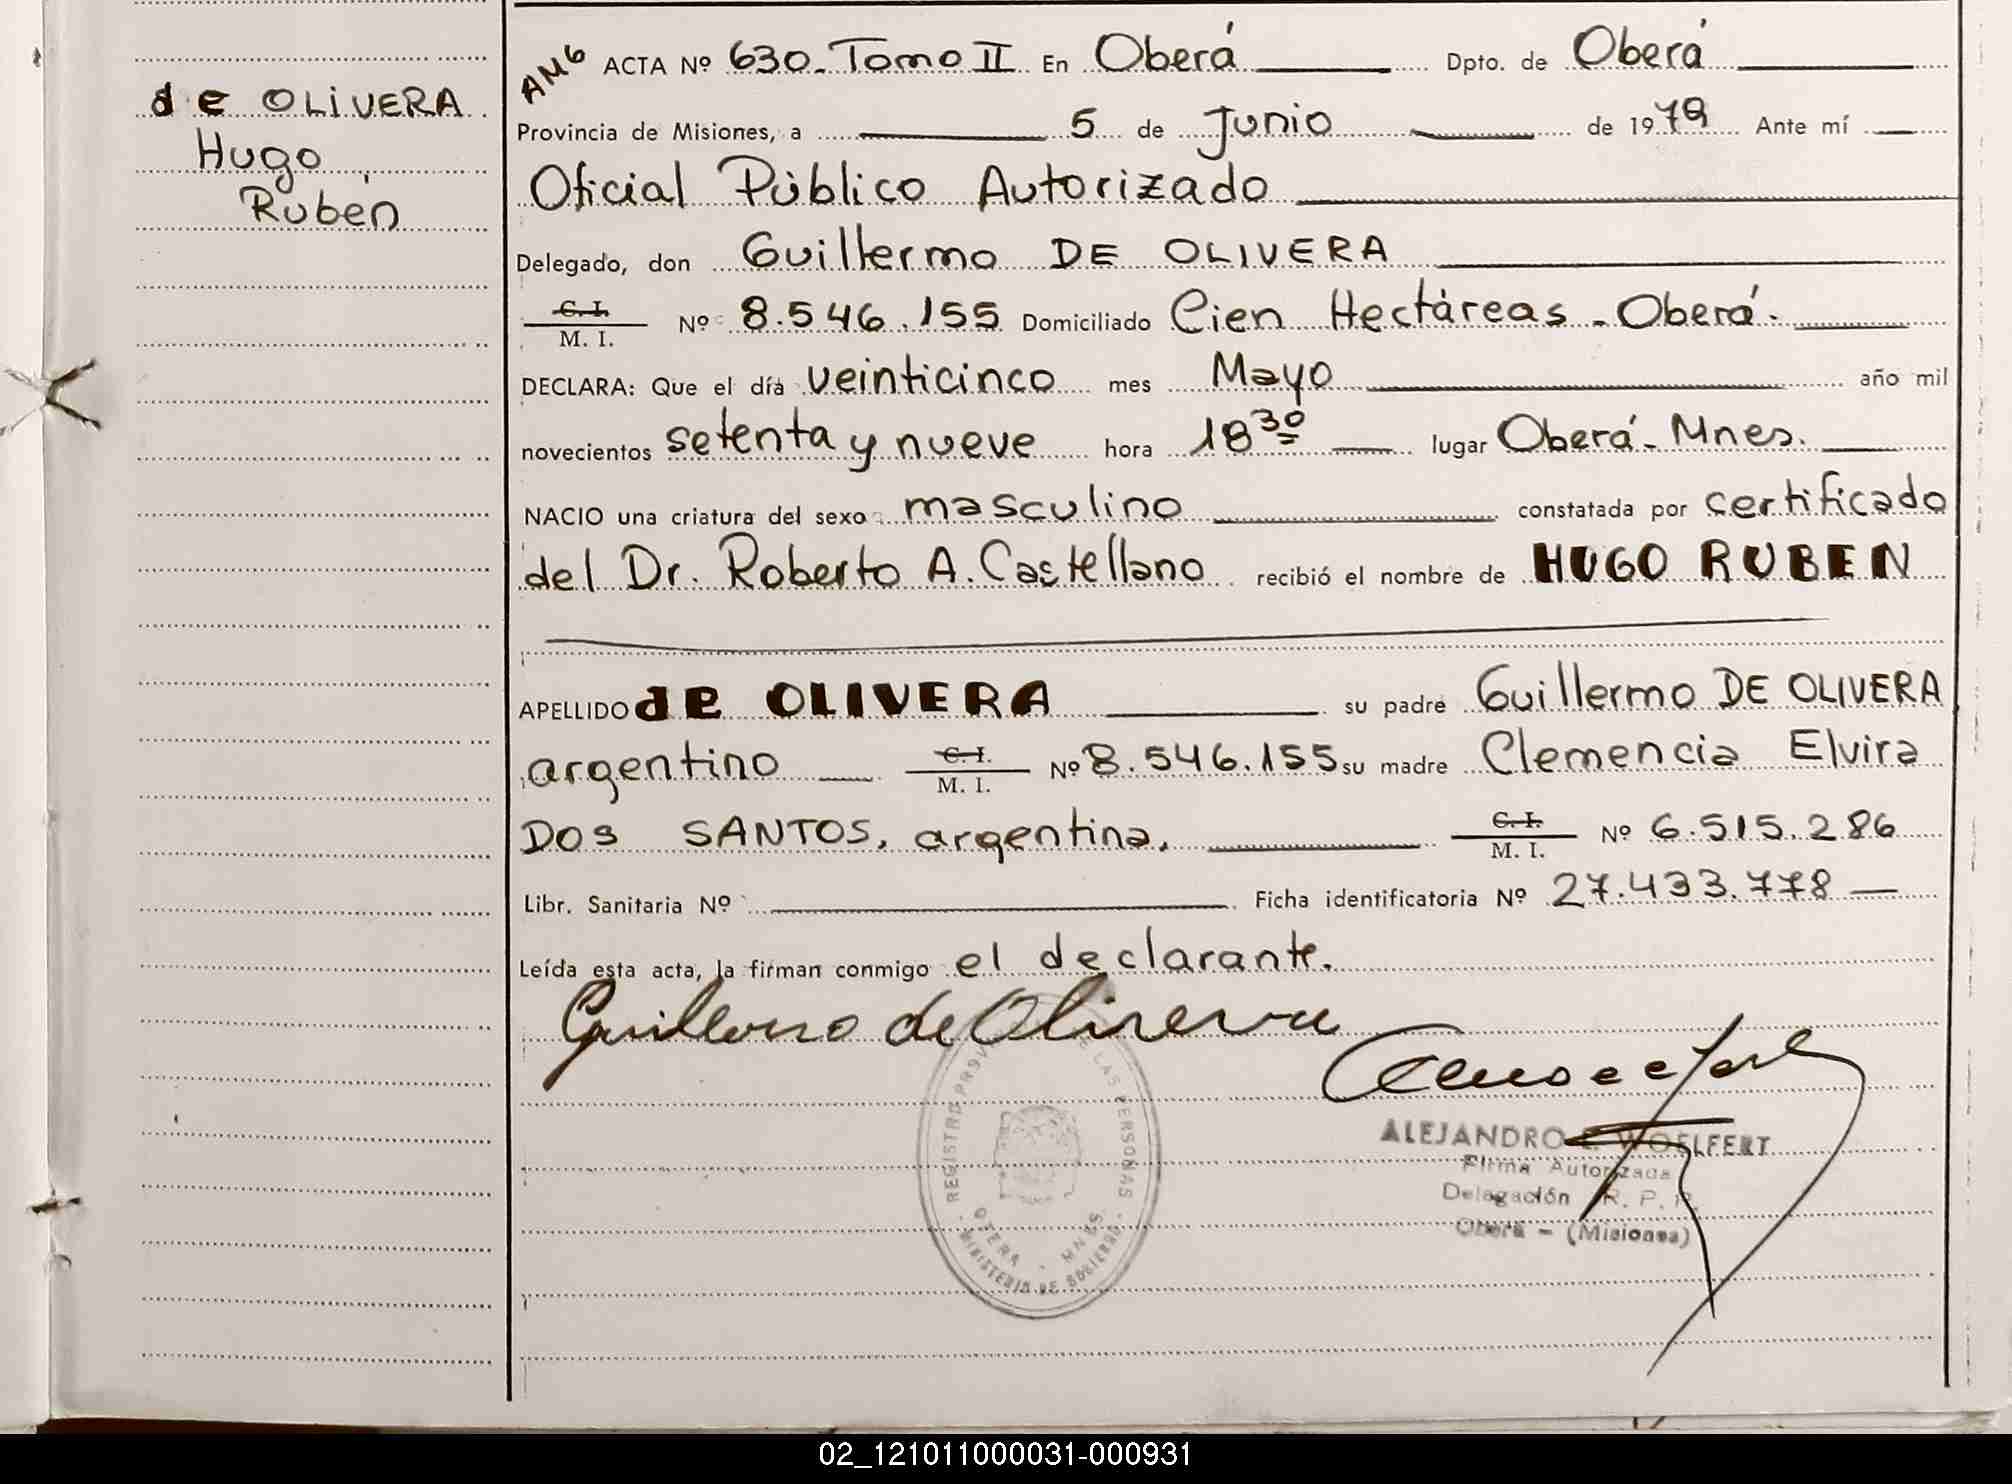 de OLIVERA
Hugo
Rubén
AMG ACTA Nº 630-Tomo II En Oberá Dpto. de Oberá
Provincia de Misiones, a 5 de Junio de 1979 Ante mí
Oficial Público Autorizado
Delegado, don Guillermo DE OLIVERA
C. I.
M. I. Nº 8.546.155 Domiciliado Cien Hectáreas - Oberá.
DECLARA: Que el día veinticinco mes Mayo año mil
novecientos setenta y nueve hora 18 30 lugar Oberá - Mnes.
NACIO una criatura del sexo masculino constatada por certificado
del Dr. Roberto A. Castellano recibió el nombre de HUGO RUBEN
APELLIDO de OLIVERA su padre Guillermo DE OLIVERA
argentino C. I. M. I. Nº 8.546.155 su madre Clemencia Elvira
DOS SANTOS, argentina, C. I. M. I. Nº 6.515.286
Libr. Sanitaria Nº Ficha identificatoria Nº 27.433.778
Leída esta acta, la firman conmigo el declarante.
Guillermo de Olivera
REGISTRO PROV DE LAS PERSONAS
OBERA - MNES.
MINISTERIO DE GOBIERNO
ALEJANDRO WOELFERT
Firma Autorizada
Delegación R. P. P.
Oberá - (Misiones)
02_121011000031-000931